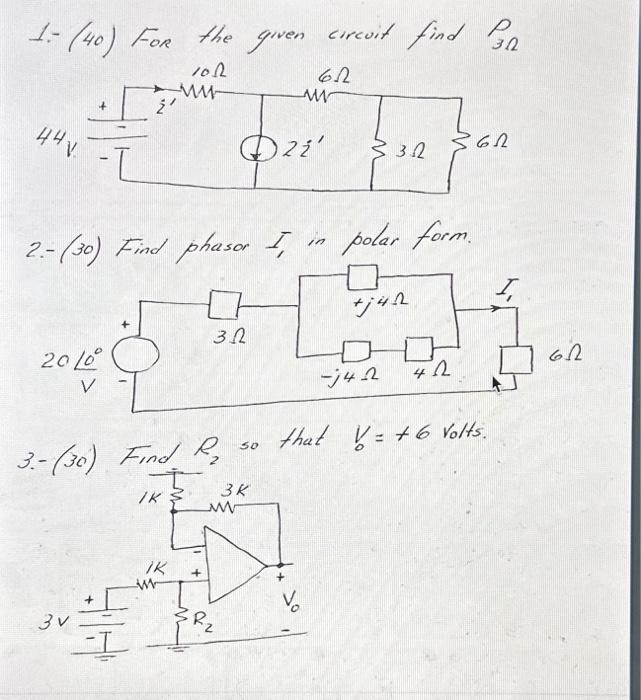 1.- (40) FOR the given circuit find P3Ω
10Ω 6Ω
+ i'
44V. 2i' 3Ω 6Ω
-
2.- (30) Find phasor I, in polar form.
+j4Ω I,
+ 3Ω
20 /0° 6Ω
V - -j4Ω 4Ω
3.- (30) Find R2 so that Vo = +6 Volts.
1K 3K
-
1K + +
+ Vo
3V R2
- -